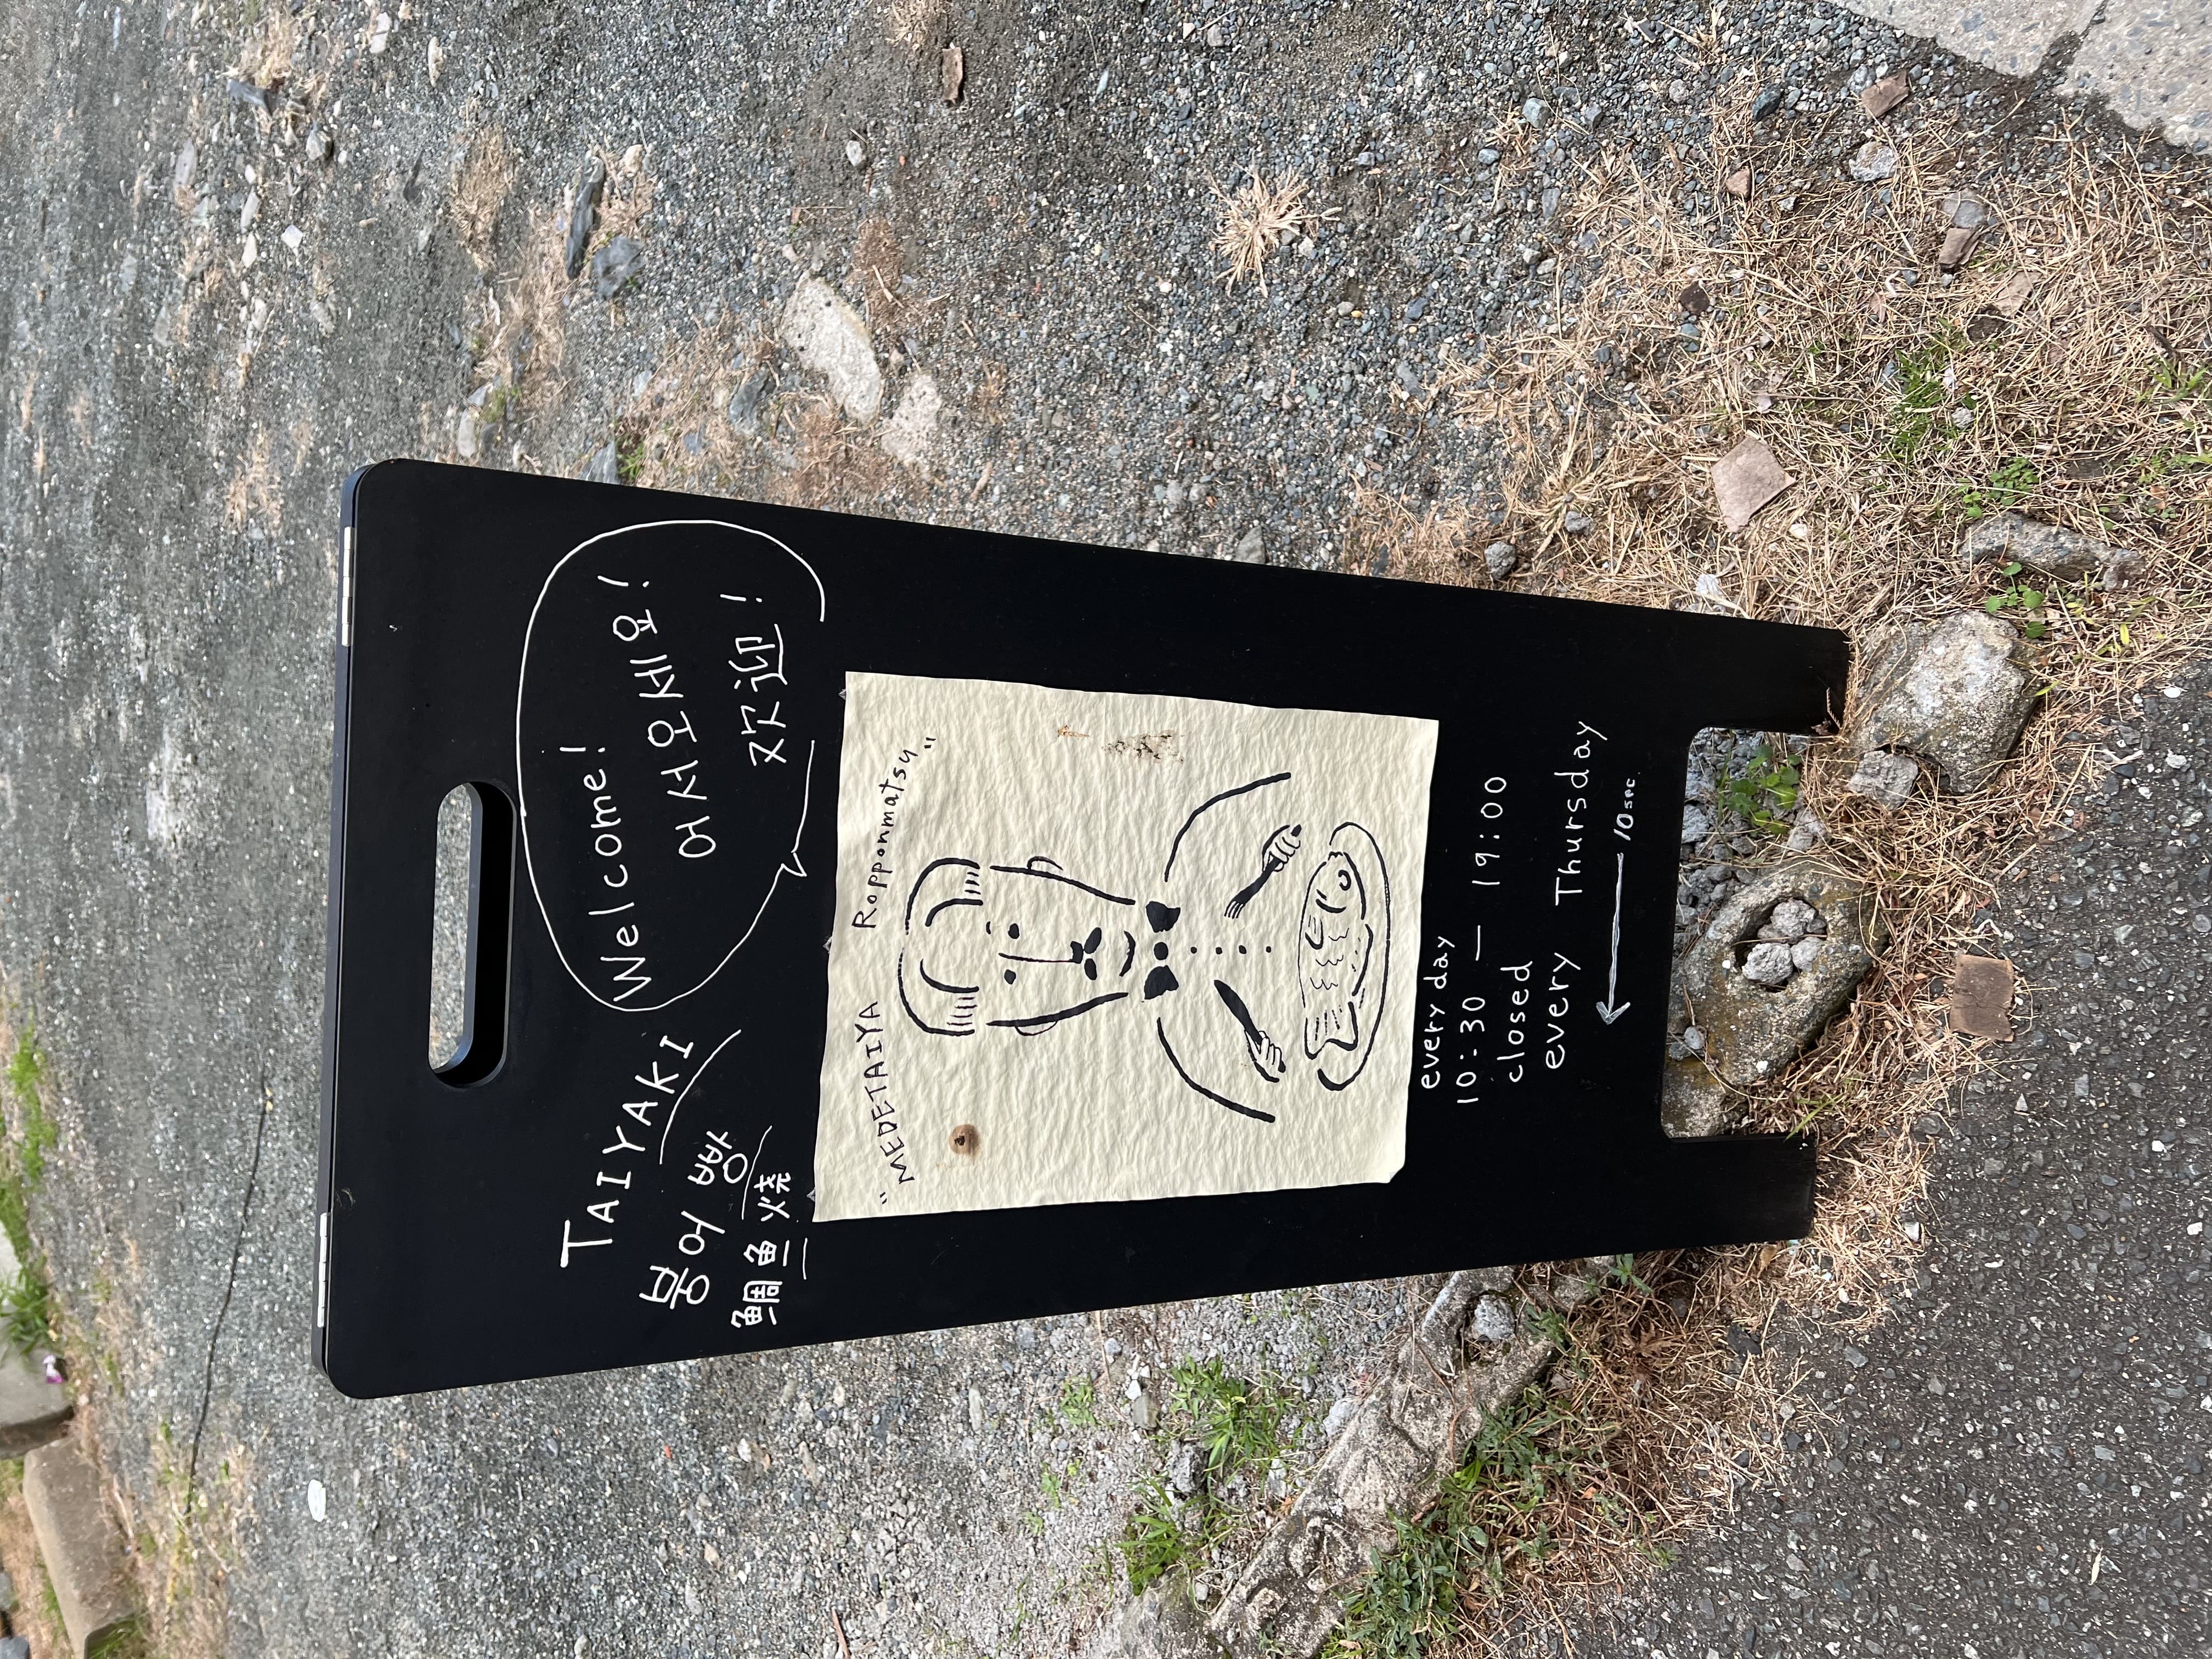 TAIYAKI
붕어빵
鯛鱼烧
Welcome!
어서오세요!
欢迎!
"MEDETAIYA Ropponmatsu"
every day
10:30 — 19:00
closed
every Thursday
← 10sec.